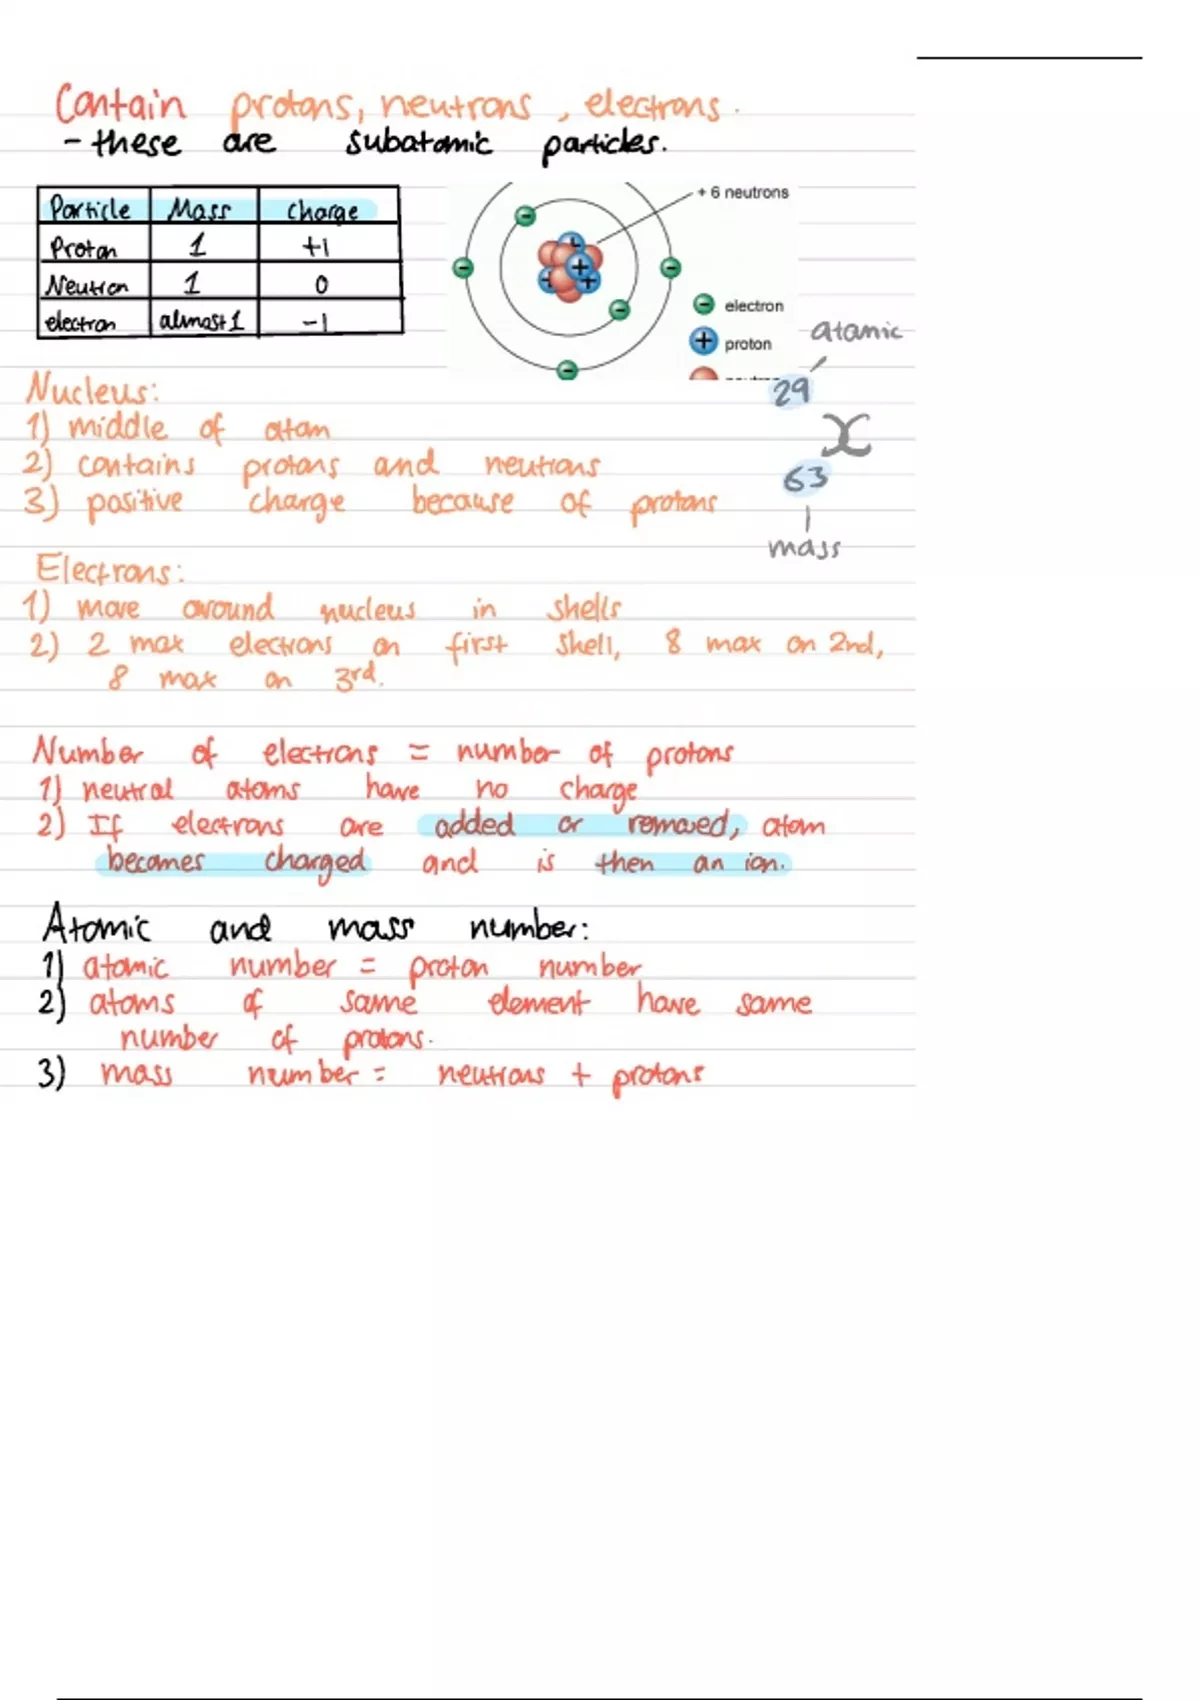 Contain protons, neutrons, electrons.
- these are subatomic particles.
Particle Mass Charge
Proton 1 +1
Neutron 1 0
electron almost 1 -1
+ 6 neutrons
electron
proton
atomic
29
X
63
mass
Nucleus:
1) middle of atom
2) contains protons and neutrons
3) positive charge because of protons
Electrons:
1) move around nucleus in shells
2) 2 max electrons on first shell, 8 max on 2nd,
8 max on 3rd.
Number of electrons = number of protons
1) neutral atoms have no charge
2) If electrons are added or removed, atom
becomes charged and is then an ion.
Atomic and mass number:
1) atomic number = proton number
2) atoms of same element have same
number of protons.
3) mass number = neutrons + protons